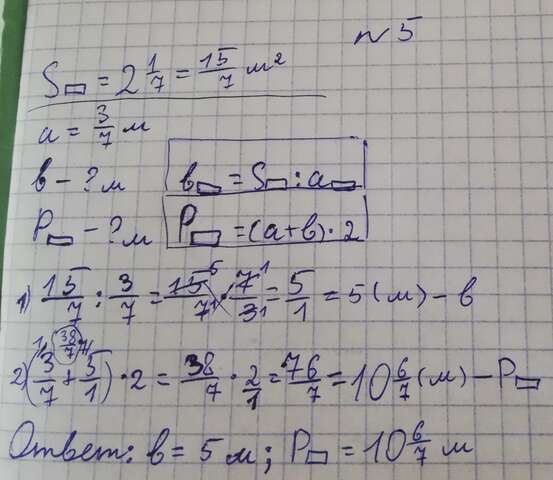 № 5
S▭ = 2 1/7 = 15/7 м²
a = 3/7 м
в - ? м
в▭ = S▭ : a▭
P▭ - ? м
P▭ = (a + в) · 2
1) 15/7 : 3/7 = 15/7 · 7/3 = 5/1 = 5 (м) - в
2) (3/7 + 5/1) · 2 = 38/7 · 2/1 = 76/7 = 10 6/7 (м) - P▭
Ответ: в = 5 м ; P▭ = 10 6/7 м